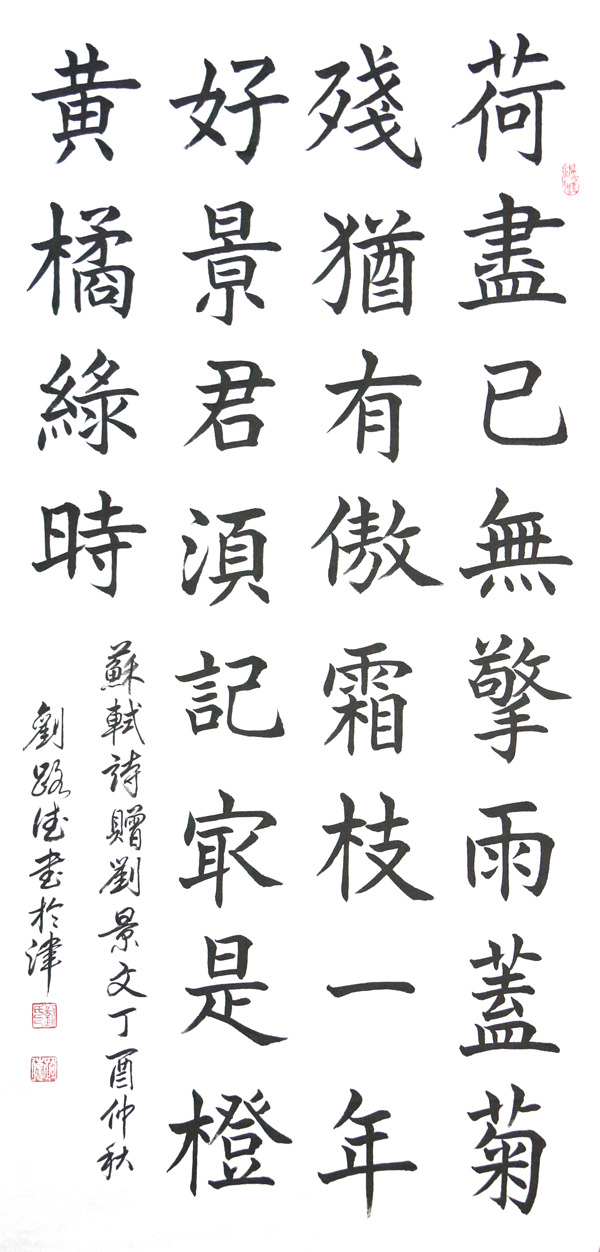 荷盡已無擎雨蓋菊
殘猶有傲霜枝一年
好景君湏記㝡是橙
黄橘綠時
蘇軾詩贈劉景文丁酉仲秋
劉路書於津